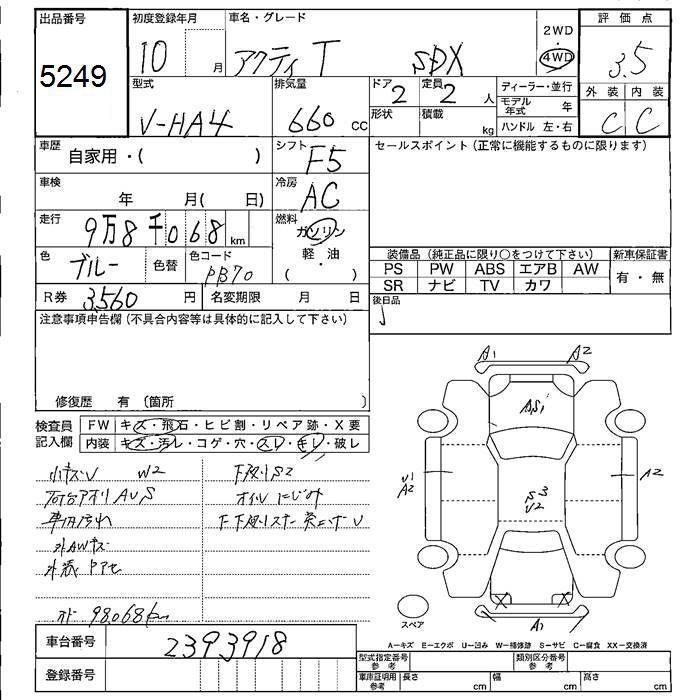 出品番号 初度登録年月 車名・グレード 評価点
5249 10 月 アクティ T SDX 2WD 4WD 3.5
型式 排気量 ドア 2 定員 2 人 ディーラー・並行 外装 内装
V-HA4 660 cc 形状 積載 kg モデル年式 年 C C
ハンドル 左・右
車歴 自家用・( ) シフト F5 セールスポイント(正常に機能するものに限ります)
車検 年 月( 日) 冷房 AC
走行 9万8千068 km 燃料 ガソリン
色 ブルー 色替 色コード PB70 軽・油 ・ ( )
装備品(純正品に限り○をつけて下さい) 新車保証書
PS PW ABS エアB AW 有・無
SR ナビ TV カワ
R券 3,560 円 名変期限 月 日 後日品
注意事項申告欄(不具合内容等は具体的に記入して下さい)
修復歴 有(箇所 )
検査員記入欄 FW キズ・飛石・ヒビ割・リペア跡・X要
内装 キズ・汚レ・コゲ・穴・スレ・キレ・破レ
小キズU W2 下廻りS2
荷台アオリAUS オイルにじみ
車内汚れ
外AWキズ
外装 アセ
オドー 98068km
A1 A2
AS1
U1
A2
S3
U2
A2
X X
A1
スペア
A-キズ E-エクボ U-凹み W-補修跡 S-サビ C-腐食 XX-交換済
車台番号 2393918
登録番号
型式指定番号 参考 類別区分番号 参考
車庫証明用 参考 長さ cm 幅 cm 高さ cm